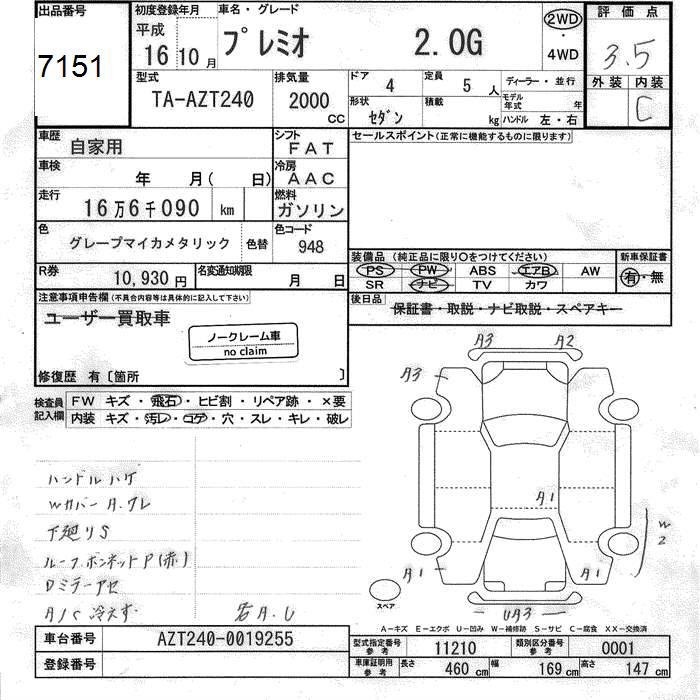 出品番号 初度登録年月 車名・グレード 2WD 評価点
7151 平成 16 年 10 月 プレミオ 2.0G ・ 4WD 3.5
型式 排気量 ドア 4 定員 5 人 ディーラー・並行 外装 内装
TA-AZT240 2000 cc 形状 セダン 積載 kg モデル年式 年 ハンドル 左・右 C
車歴 自家用 シフト FAT セールスポイント(正常に機能するものに限ります)
車検 年 月( 日) 冷房 AAC
走行 16万6千090 km 燃料 ガソリン
色 グレープマイカメタリック 色替 色コード 948
装備品 (純正品に限り○をつけてください) 新車保証書
PS PW ABS エアB AW 有・無
SR ナビ TV カワ
R券 10,930 円 名変通知期限 月 日
後日品 保証書・取説・ナビ取説・スペアキー
注意事項申告欄(不具合内容等は具体的に記入して下さい)
ユーザー買取車
ノークレーム車
no claim
修復歴 有〔箇所 〕
検査員記入欄 FW キズ・飛石・ヒビ割・リペア跡・×要
内装 キズ・汚レ・コゲ・穴・スレ・キレ・破レ
A3 A2
A3
A1
W2
A1 A1
UA3
スペア
ハンドルハゲ
WカバーA.ワレ
下廻りS
ルーフ ボンネットP(赤)
Dミラーアセ
A/C冷えず 右A.U
A-キズ E-エクボ U-凹み W-補修跡 S-サビ C-腐食 XX-交換済
車台番号 AZT240-0019255
登録番号
型式指定番号 参考 11210 類別区分番号 参考 0001
車庫証明用 参考 長さ 460 cm 幅 169 cm 高さ 147 cm